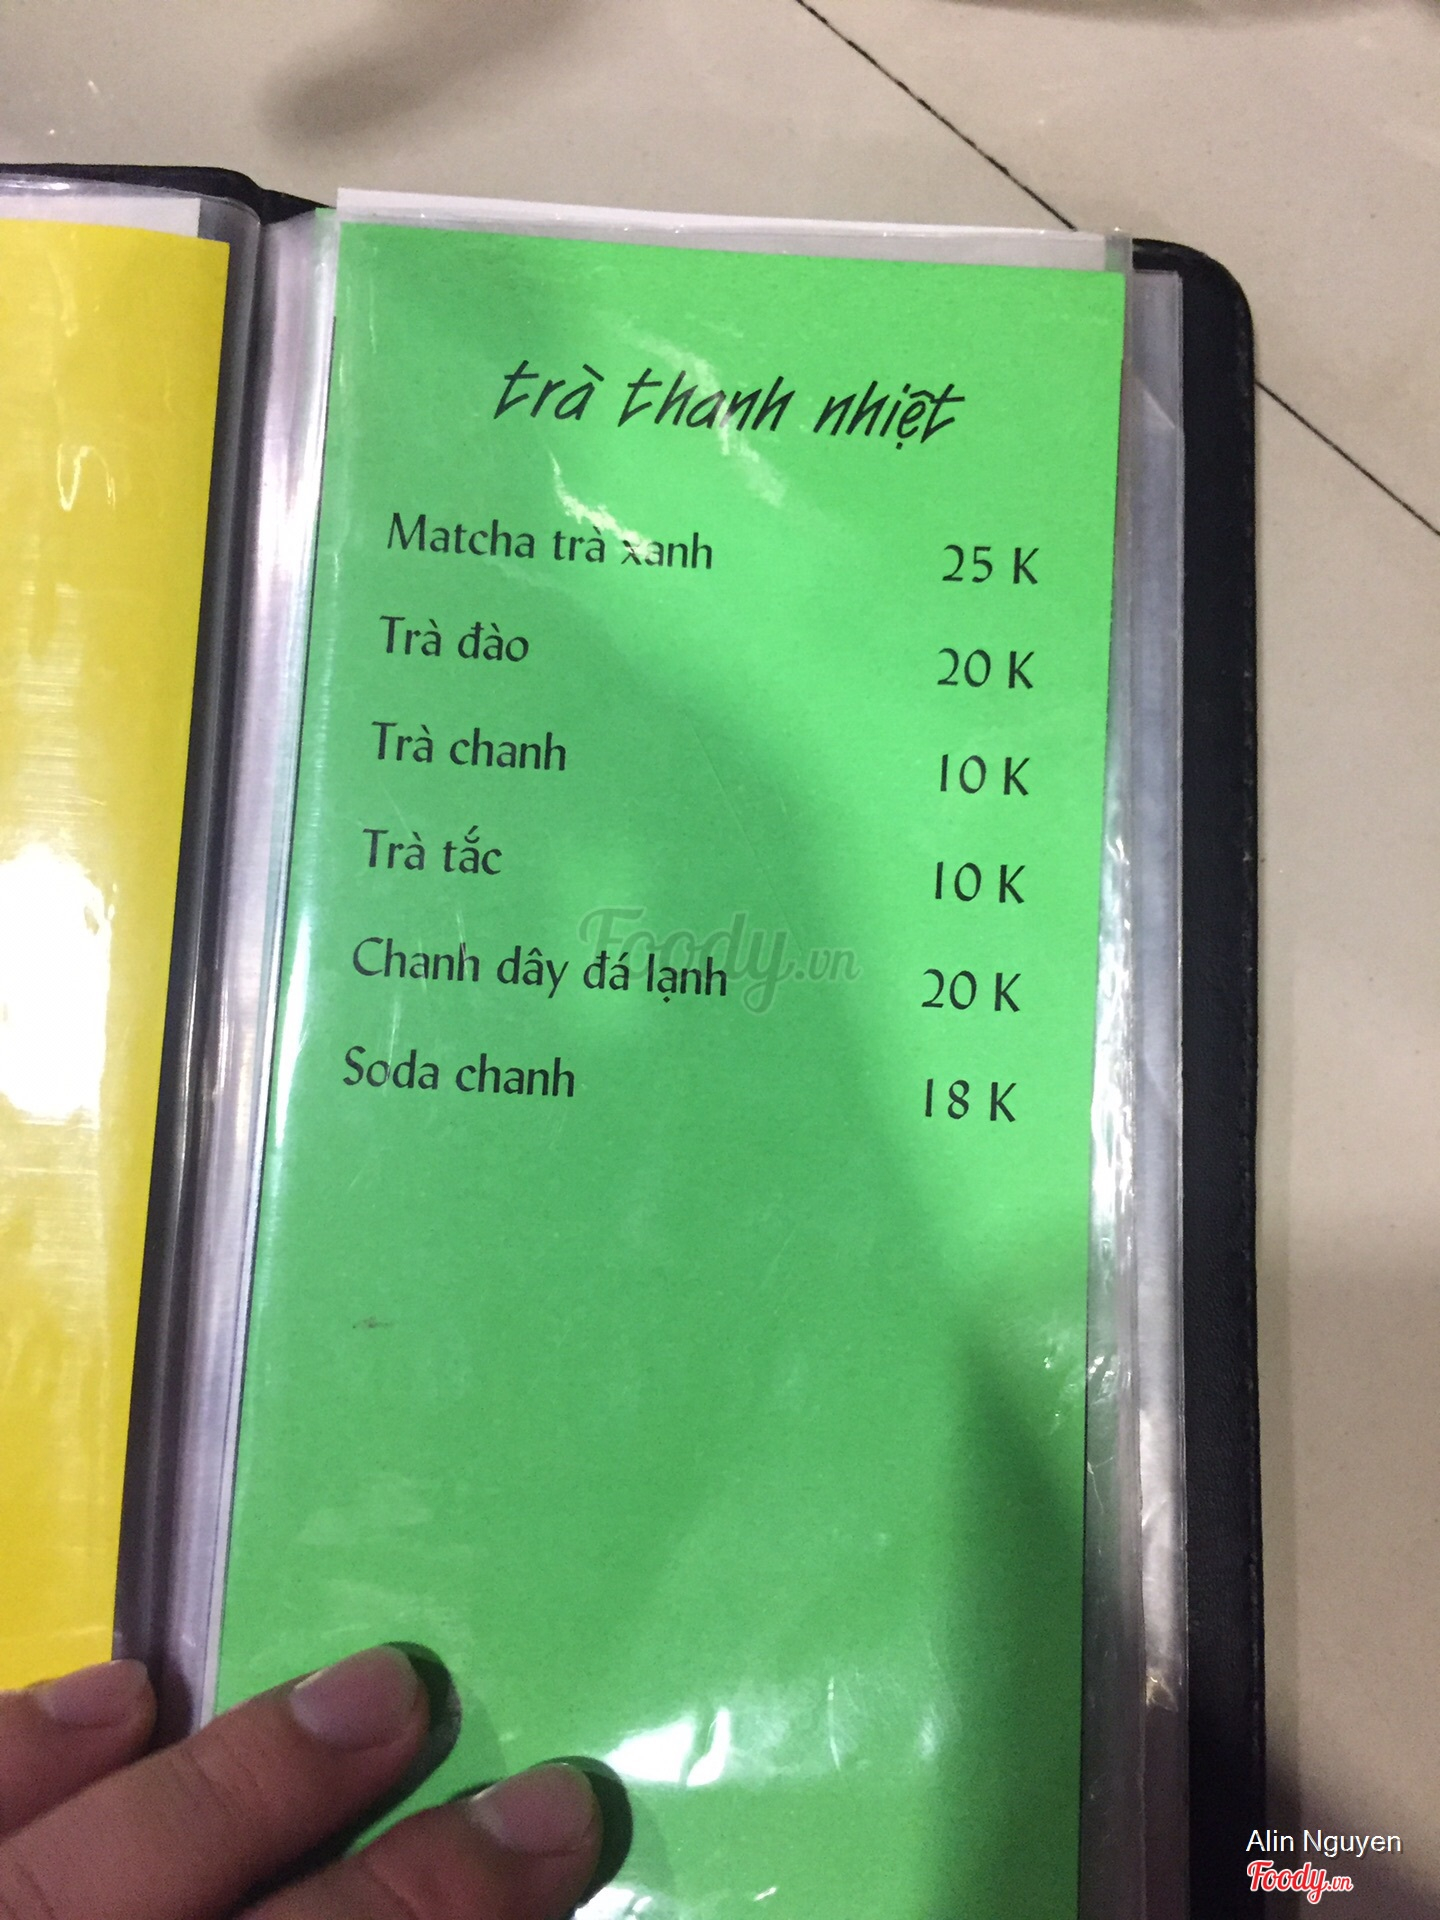 trà thanh nhiệt
Matcha trà xanh 25 K
Trà đào 20 K
Trà chanh 10 K
Trà tắc 10 K
Chanh dây đá lạnh 20 K
Soda chanh 18 K
Foody.vn
Alin Nguyen
Foody.vn